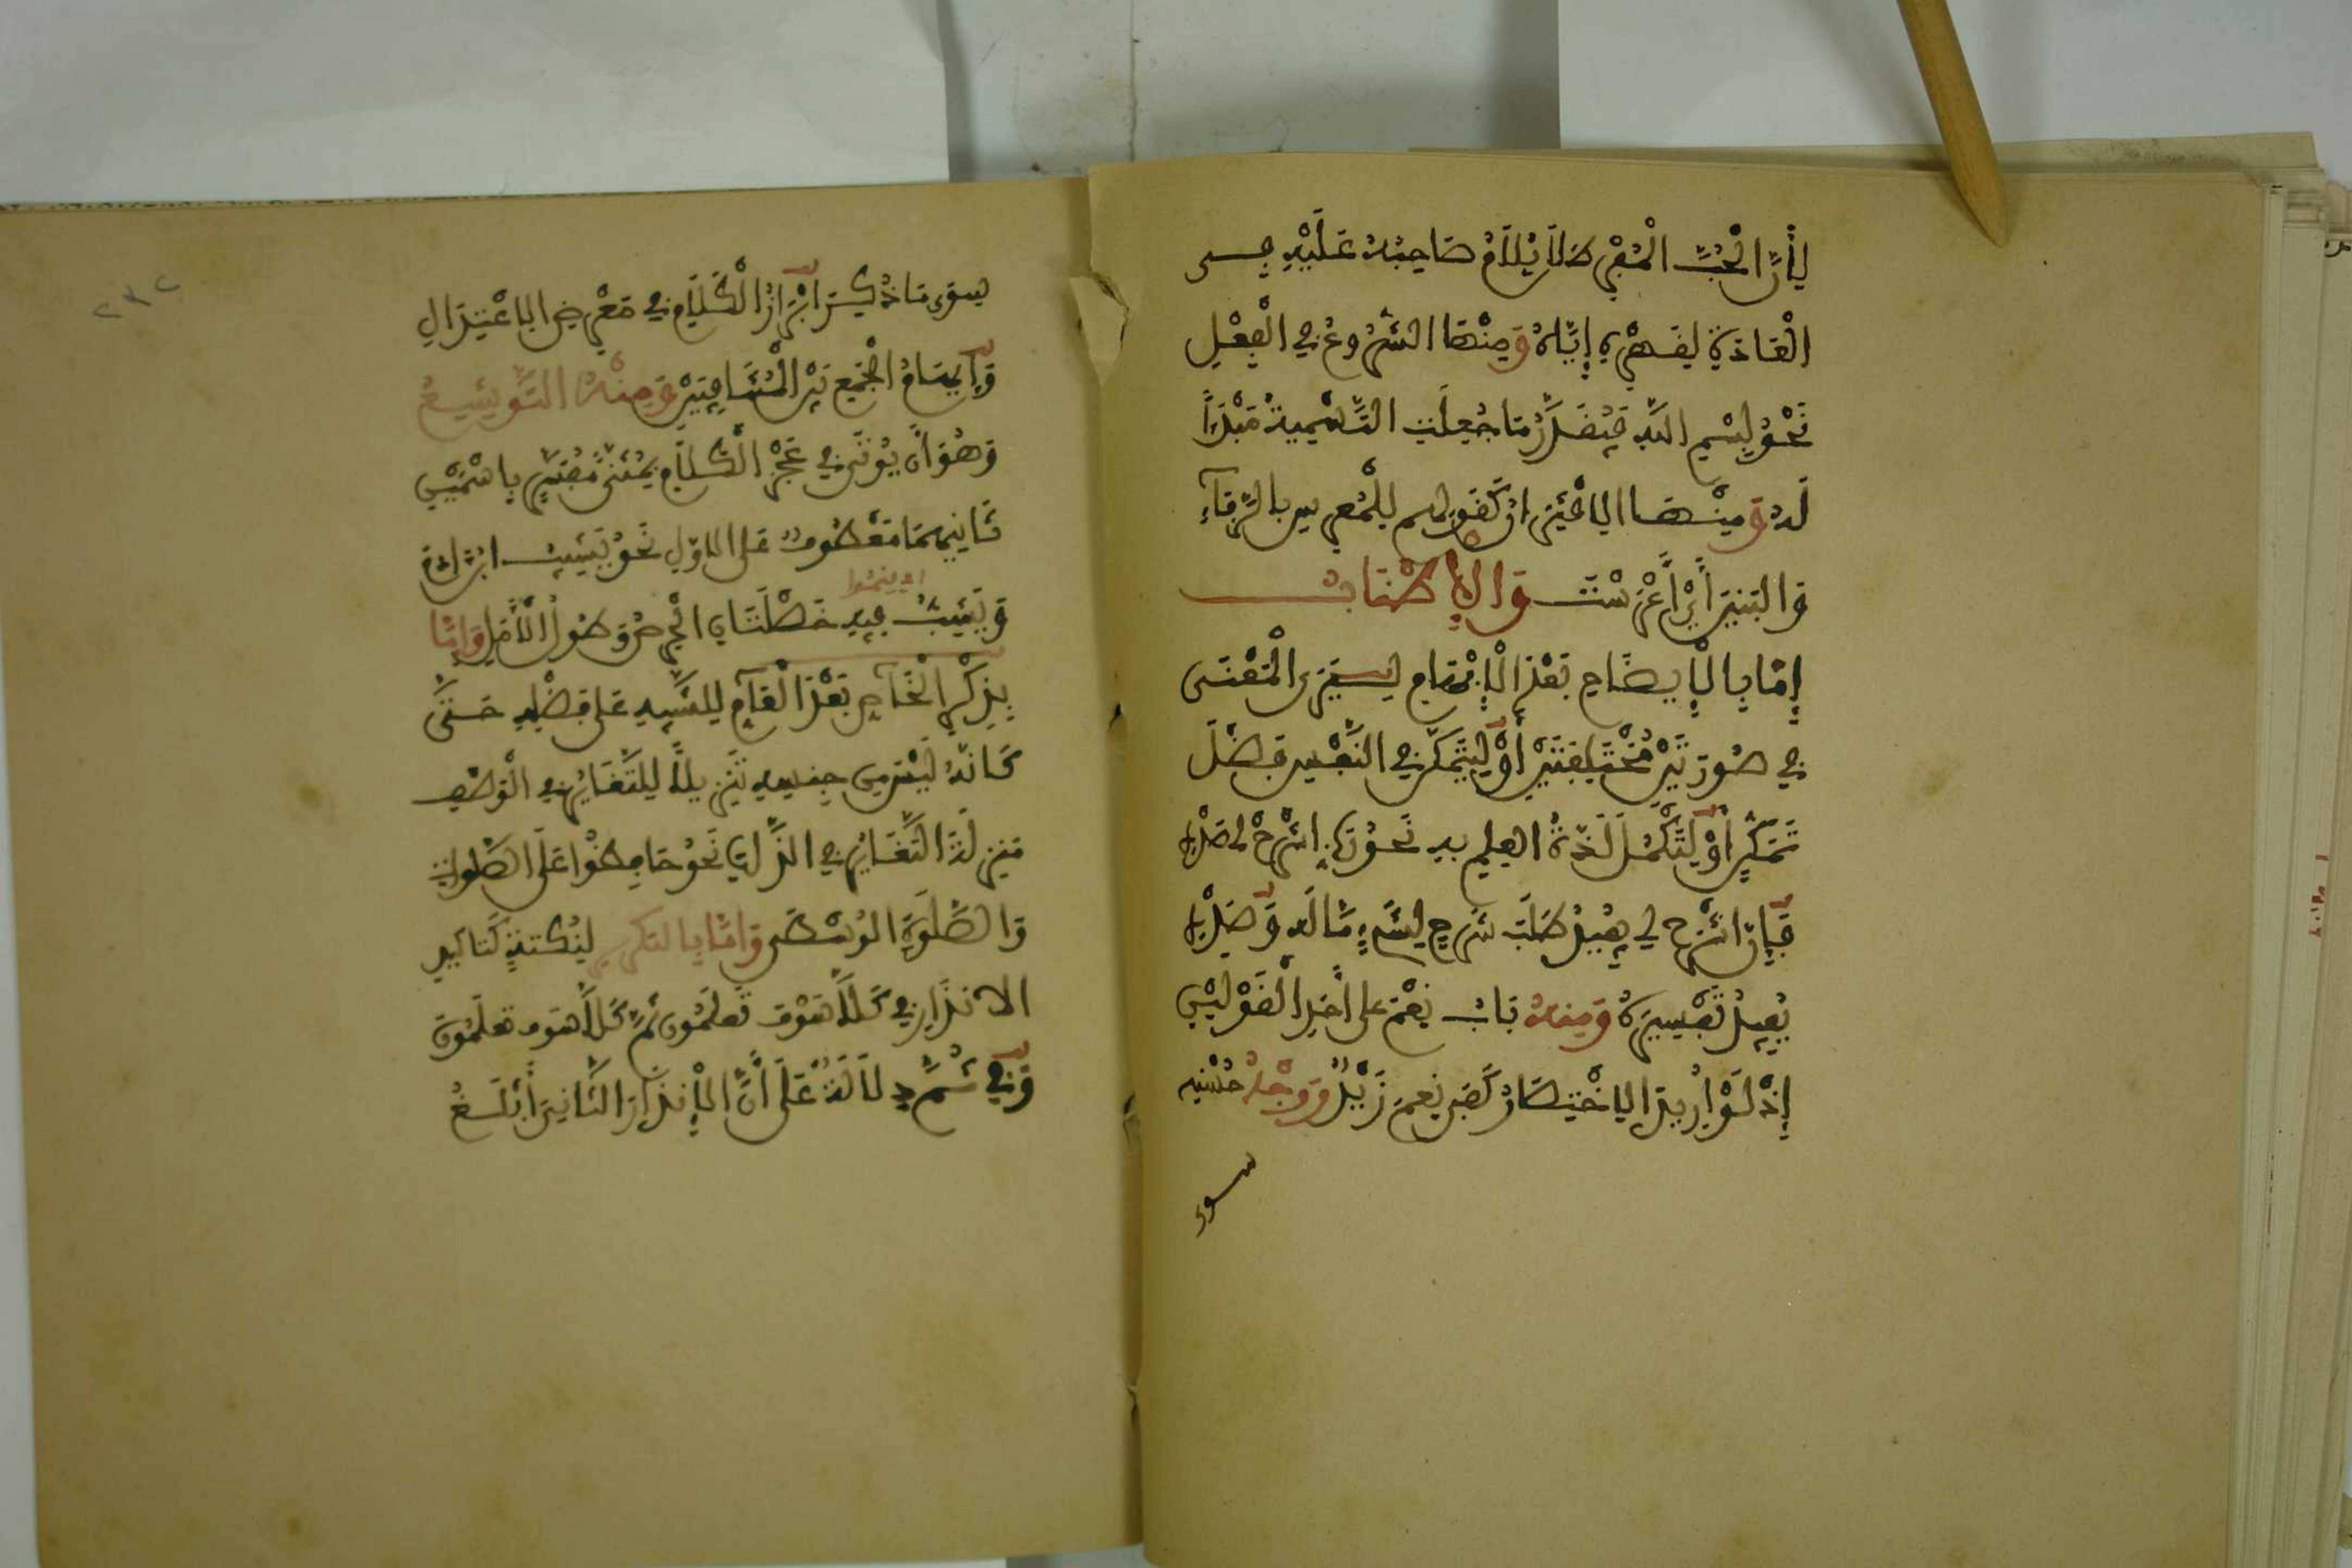 لِأَنَّ الْحُبَّ الْمُفْرِطَ لَا يُلَامُ صَاحِبُهُ عَلَيْهِ فِي
الْعَادَةِ لِقَهْرِهِ إِيَّاهُ وَمِنْهَا الشُّرُوعُ فِي الْفِعْلِ
نَحْوُ بِسْمِ اللَّهِ فَيُقَدَّرُ مَا جُعِلَتِ التَّسْمِيةُ مَبْدَأً
لَهُ وَمِنْهَا الِاقْتِرَانُ كَقَولِهِم لِلْمُعرِسِ بِالرِّفَآءِ
وَالبَنِينَ أَيْ أَعْرَسْتَ وَالإِطْنَابُ
إِمَّا بِالْإِيضَاحِ بَعْدَ الْإِبْهَامِ لِيَرَى الْمَعْنَى
فِي صُورَتَيْنِ مُخْتَلِفَتَيْنِ أَوْ لِيَتَمَكَّنَ فِي النَّفْسِ فَضْلَ
تَمَكُّنٍ أَوْ لِتَكْمُلَ لَذَّةُ العِلمِ بِهِ نَحْوُ رَبِّ اشْرَحْ لِي صَدْرِي
فَإِنَّ اشْرَح لِي يُفِيدُ طَلَبَ شَرحٍ لِشَيْءٍ مَّا لَهُ وَصَدْرِي
يُفِيدُ تَفْسِيرَهُ وَمِنهُ بَابُ نِعْمَ عَلَى أَحَدِ الْقَوْلَيْنِ
إِذْ لَوْ أُرِيدَ الِاخْتِصَارُ كَفَى نِعمَ زَيْدٌ وَوَجْهُ حُسْنِهِ
سوى
سِوَى مَا ذُكِرَ إِبْرَازُ الْكَلَامِ فِي مَعْرِضِ الِاعْتِدَالِ
وَإِيهَامُ الْجَمْعِ بَيْنَ الْمُتَنَافِيَيْنِ وَمِنْهُ التَّوشِيعُ
وَهُوَ أَن يُوتَى فِي عَجْزِ الْكَلَامِ بِمُثَنًّى مُفَسَّرٍ بِاسْمَيْنِ
ثَانِيهِمَا مَعْطُوفٌ عَلَى الاوّلِ نَحْوُ يَشِيبُ ابْنُ آدَمَ
وَيَشِبُّ فِيهِ خَصْلَتَانِ الْحِرْصُ وَطُولُ الْأَمَلِ وَإِمَّا
بِذِكْرِ الْخَآصِّ بَعْدَ الْعَآمِّ لِلتَّنْبِيهِ عَلَى فَضْلِهِ حَتَّى
كَأَنَّهُ لَيْسَ مِن جِنسِهِ تَنْزِيلاً لِلتَّغَايُرِ فِي الْوَصْفِ
مَنزِلَةَ التَّغَايُرِ فِي الذَّاتِ نَحوُ حَافِظُوا عَلَى الصَّلَواتِ
وَالصَّلَوٰةِ الوُسْطَى وَإِمَّا بِالتَّكرِيرِ لِنُكتَةٍ كَتَاكِيدِ
الانذَارِ فِي كَلَّا سَوْفَ تَعلَمُون ثُمَّ كَلَّا سَوفَ تعلَمُونَ
وَفِي ثُمَّ دِلَالَةٌ عَلَى أَنَّ الْإِنذَارَ الثَّانِيَ أَبْلَغُ